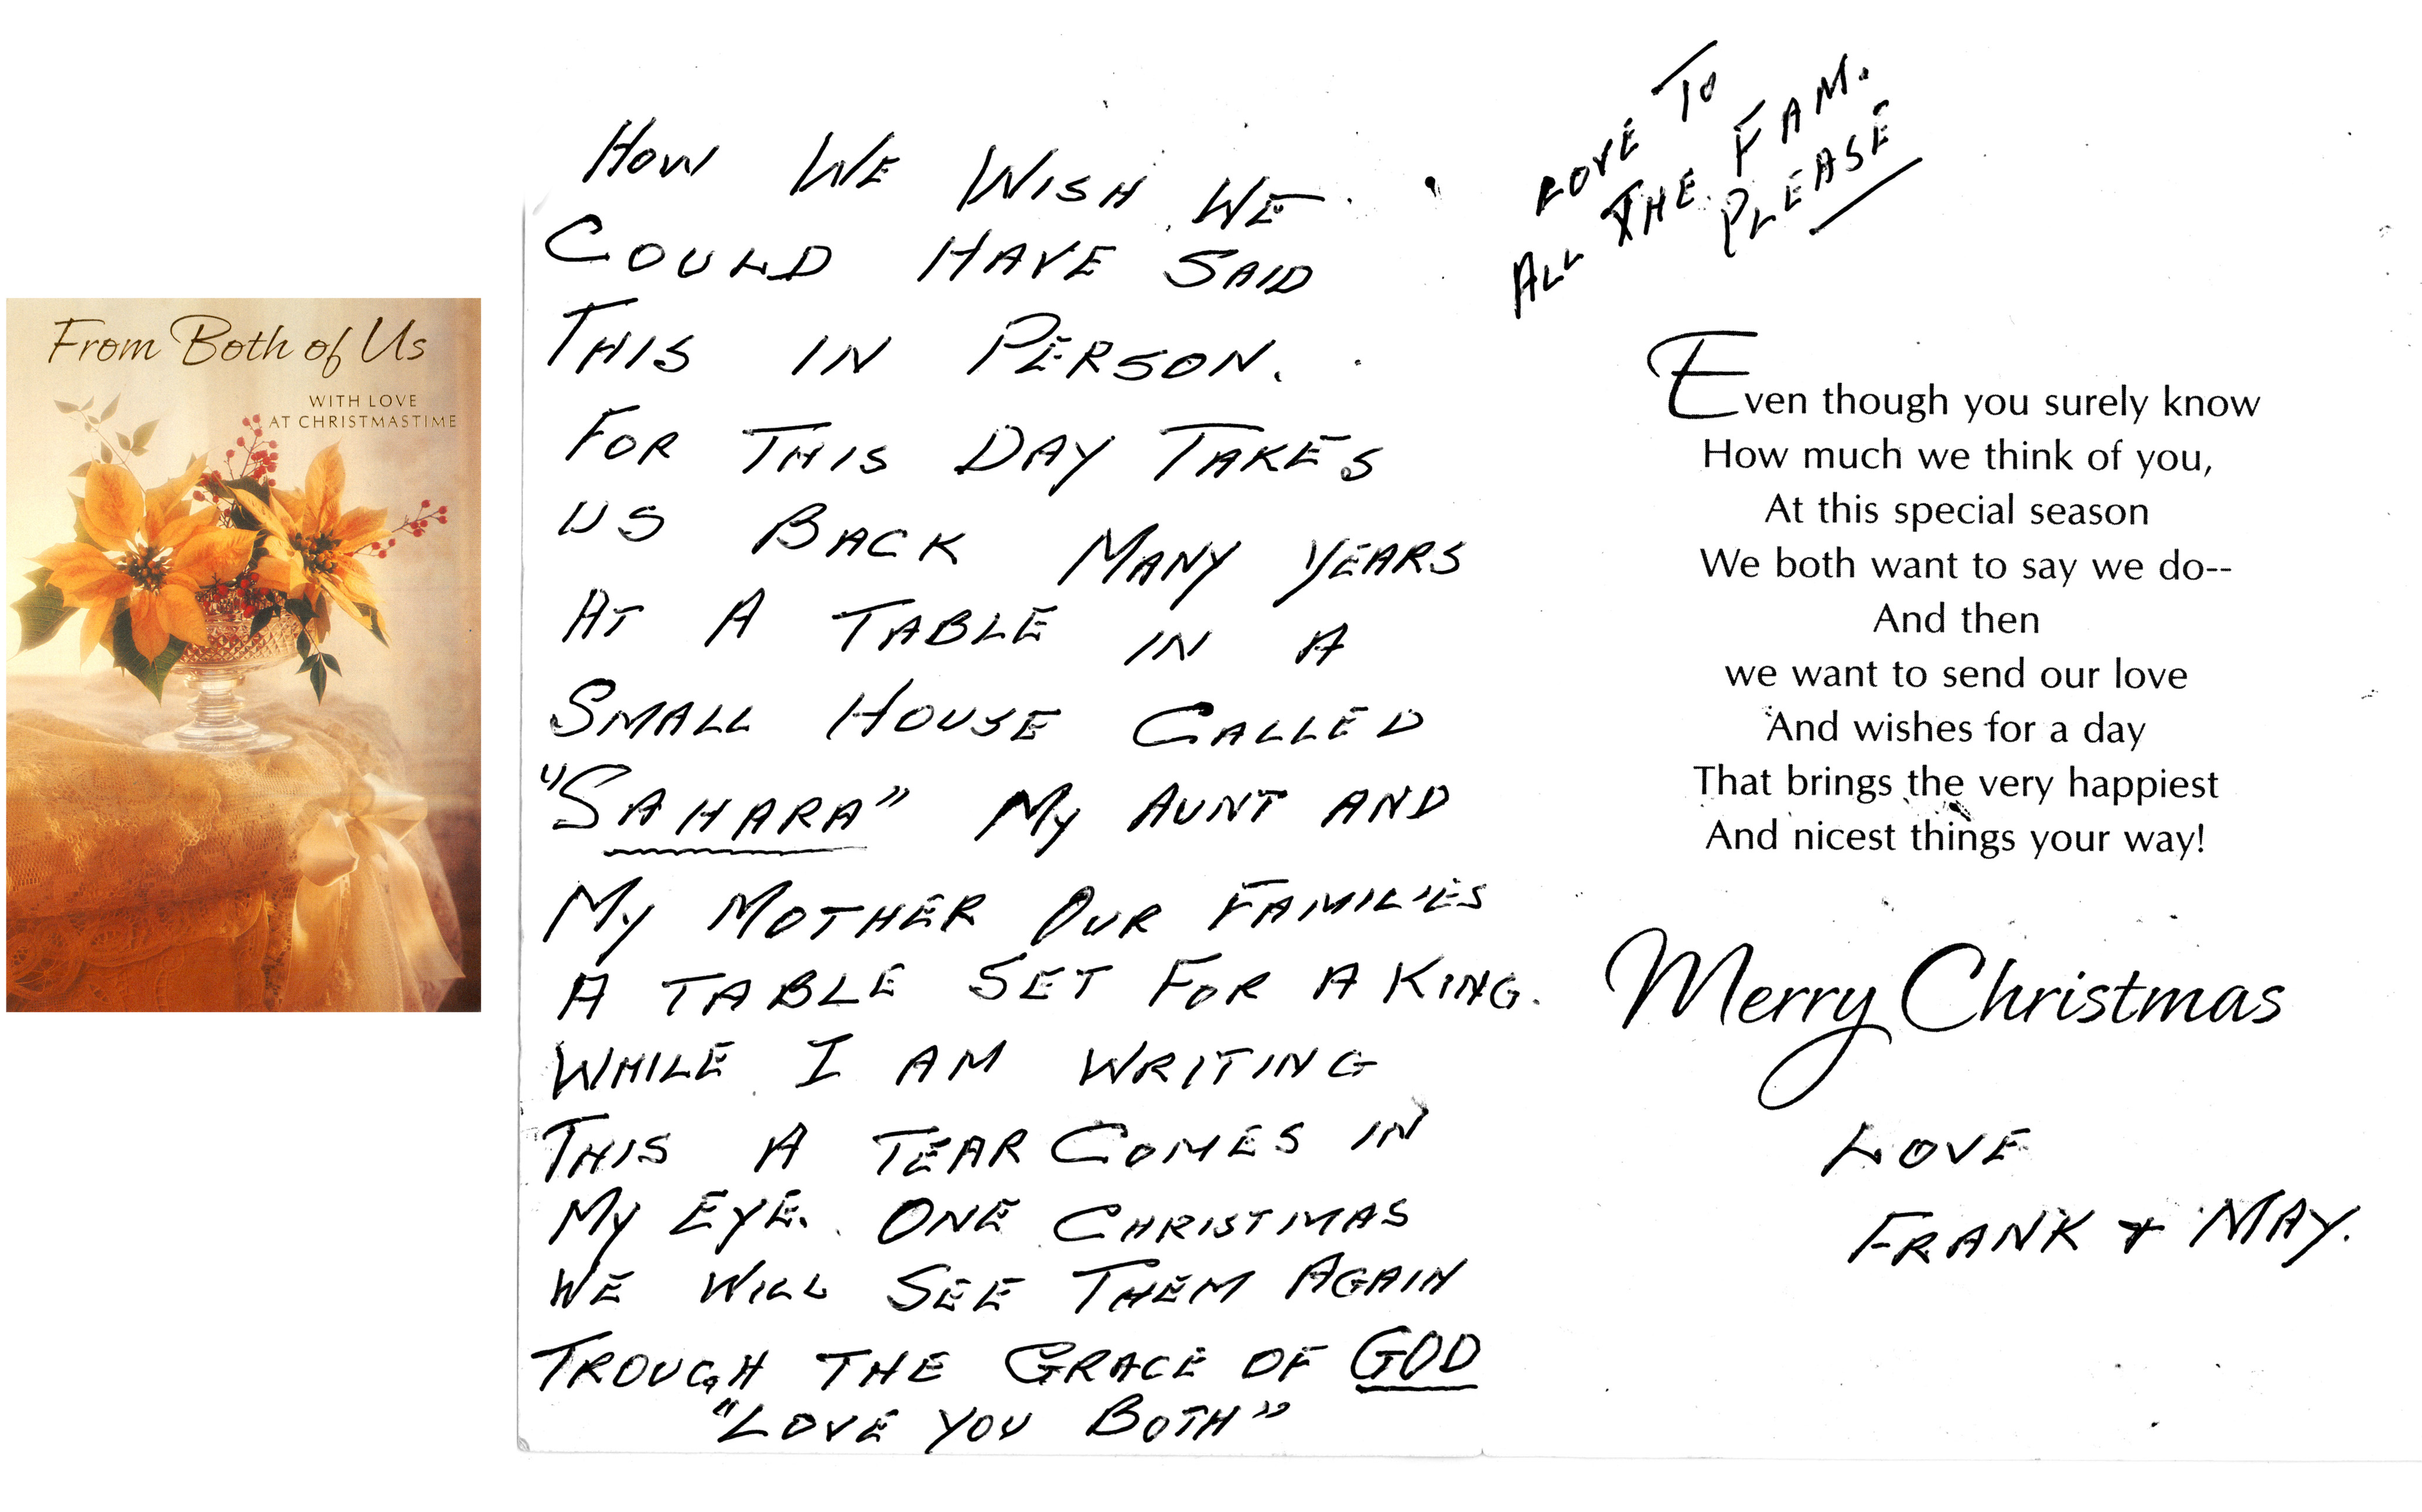 From Both of Us
WITH LOVE
AT CHRISTMASTIME
HOW WE WISH WE
COULD HAVE SAID
THIS IN PERSON.
FOR THIS DAY TAKES
US BACK MANY YEARS
AT A TABLE IN A
SMALL HOUSE CALLED
"SAHARA" MY AUNT AND
MY MOTHER OUR FAMILIES
A TABLE SET FOR A KING.
WHILE I AM WRITING
THIS A TEAR COMES IN
MY EYE. ONE CHRISTMAS
WE WILL SEE THEM AGAIN
TROUGH THE GRACE OF GOD
"LOVE YOU BOTH"
LOVE TO
ALL THE FAM.
PLEASE
Even though you surely know
How much we think of you,
At this special season
We both want to say we do--
And then
we want to send our love
And wishes for a day
That brings the very happiest
And nicest things your way!
Merry Christmas
LOVE
FRANK + MAY.